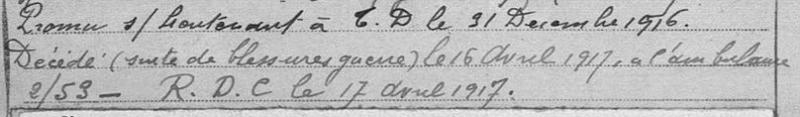 Promu s/lieutenant à T. D le 31 Décembre 1916.
Décédé (suite de blessures guerre) le 16 Avril 1917, a l'ambulance
2/53 - R. D. C le 17 Avril 1917.